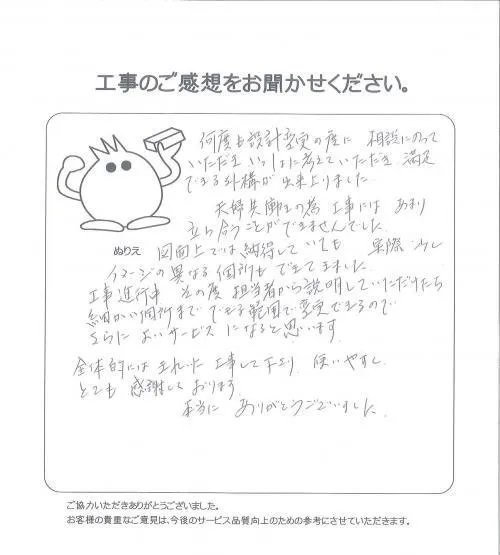 工事のご感想をお聞かせください。
何度も設計変更の度に 相談にのって
いただき いっしょに考えていただき 満足
できる外構が 出来上りました。
夫婦共働きの為 工事には あまり
立ち合うことができませんでした。
ぬりえ
図面上では納得して いても 実際 少し
イメージの異なる個所も でてきました。
工事進行中 その度 担当者から説明していただけたら
細かい個所まで できる範囲で変更できるので
さらに よいサービス になると思います。
全体的には きれいな 工事して下さり 使いやすく
とても 感謝して おります。
本当に ありがとうございました。
ご協力いただきありがとうございました。
お客様の貴重なご意見は、今後のサービス品質向上のための参考にさせていただきます。